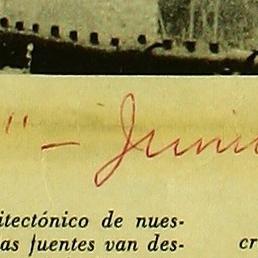 " — Junio
itectónico de nues-
as fuentes van des-
cr